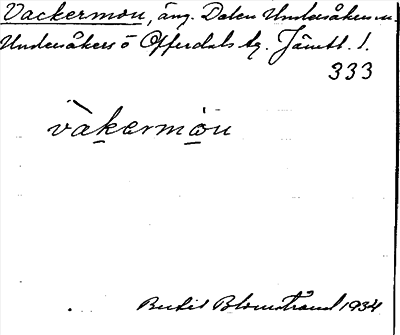 Vackermon, äng. Dalen Undersåkers sn.
Undersåkers o Offerdals tg. Jämtl. l.
333
vàkermòu
Bertil Blomstrand 1934